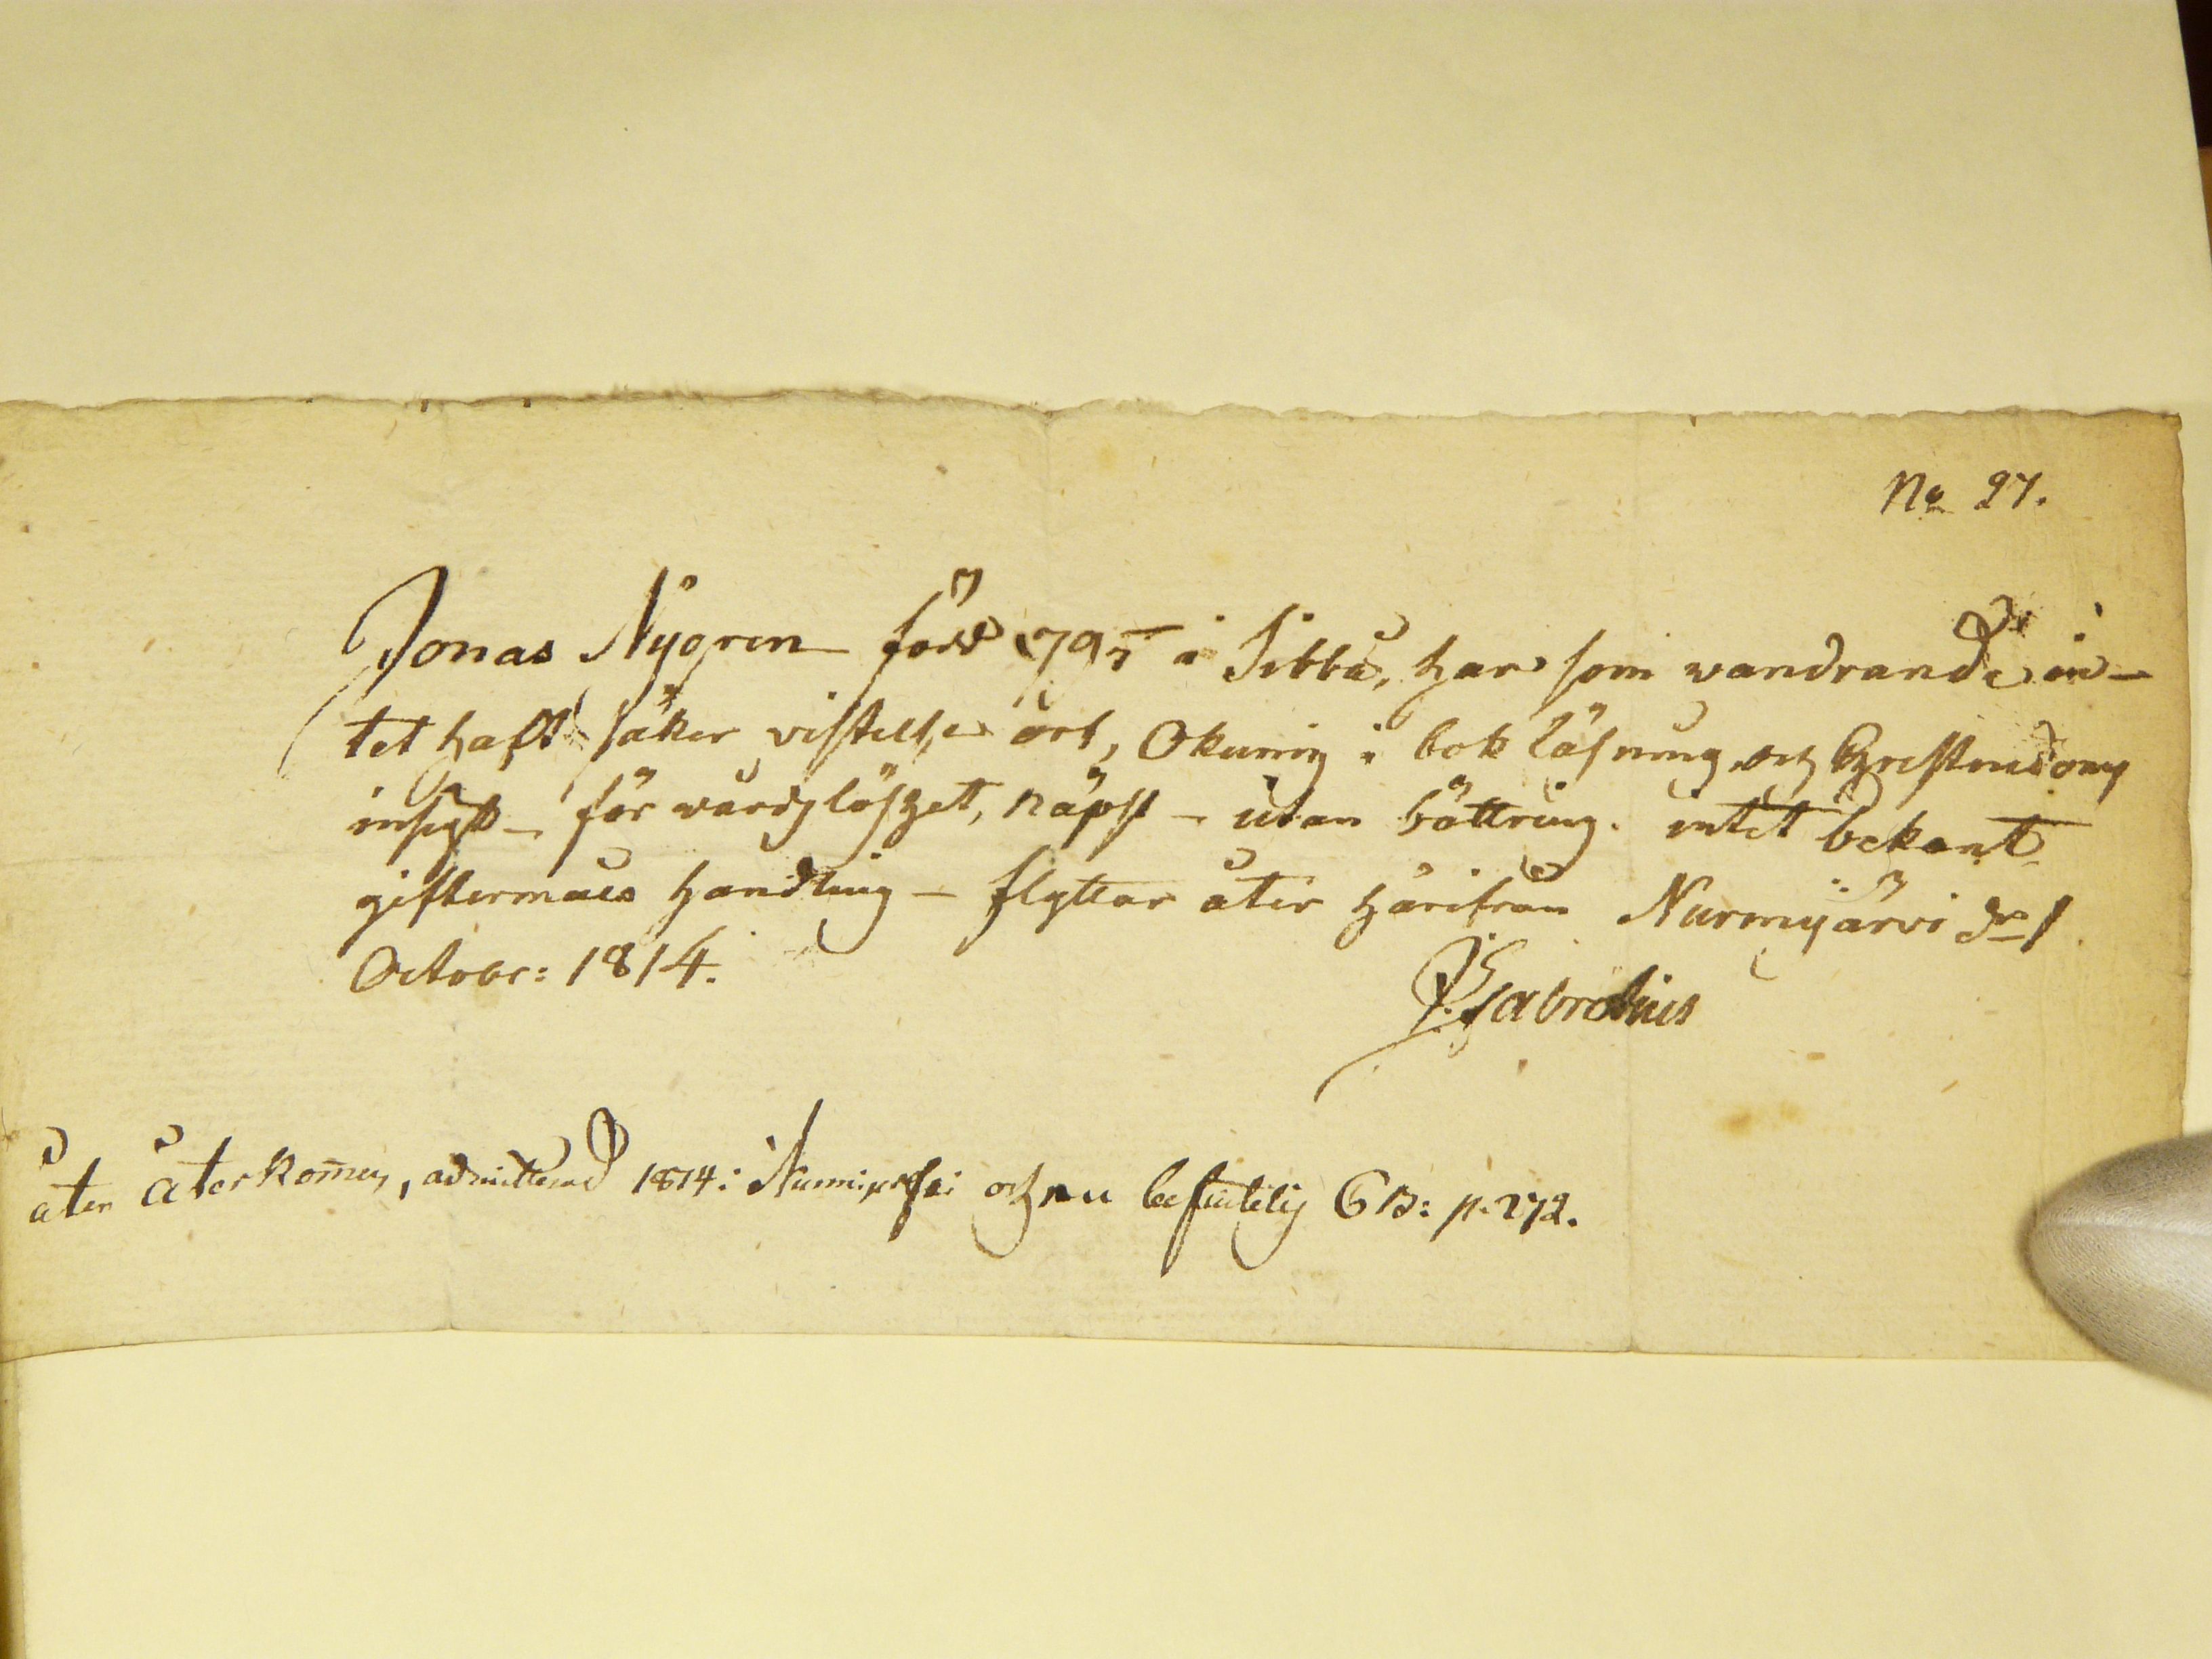 No 27.
Jonas Nygren född 795 i Sibbå, har som wandrande in-
tet haft säker vistelse ort, Okunig i bok läsning och Christendoms
insigt – för wårdslöshet, näpst – utan bättring. intet bekant
giftermåls handling – flyttar åter härifrån Nurmijärvi d. 1
Octobr: 1814.
åter återkommen, admitterad 1814 i och nu befintelig CB: p. 272.